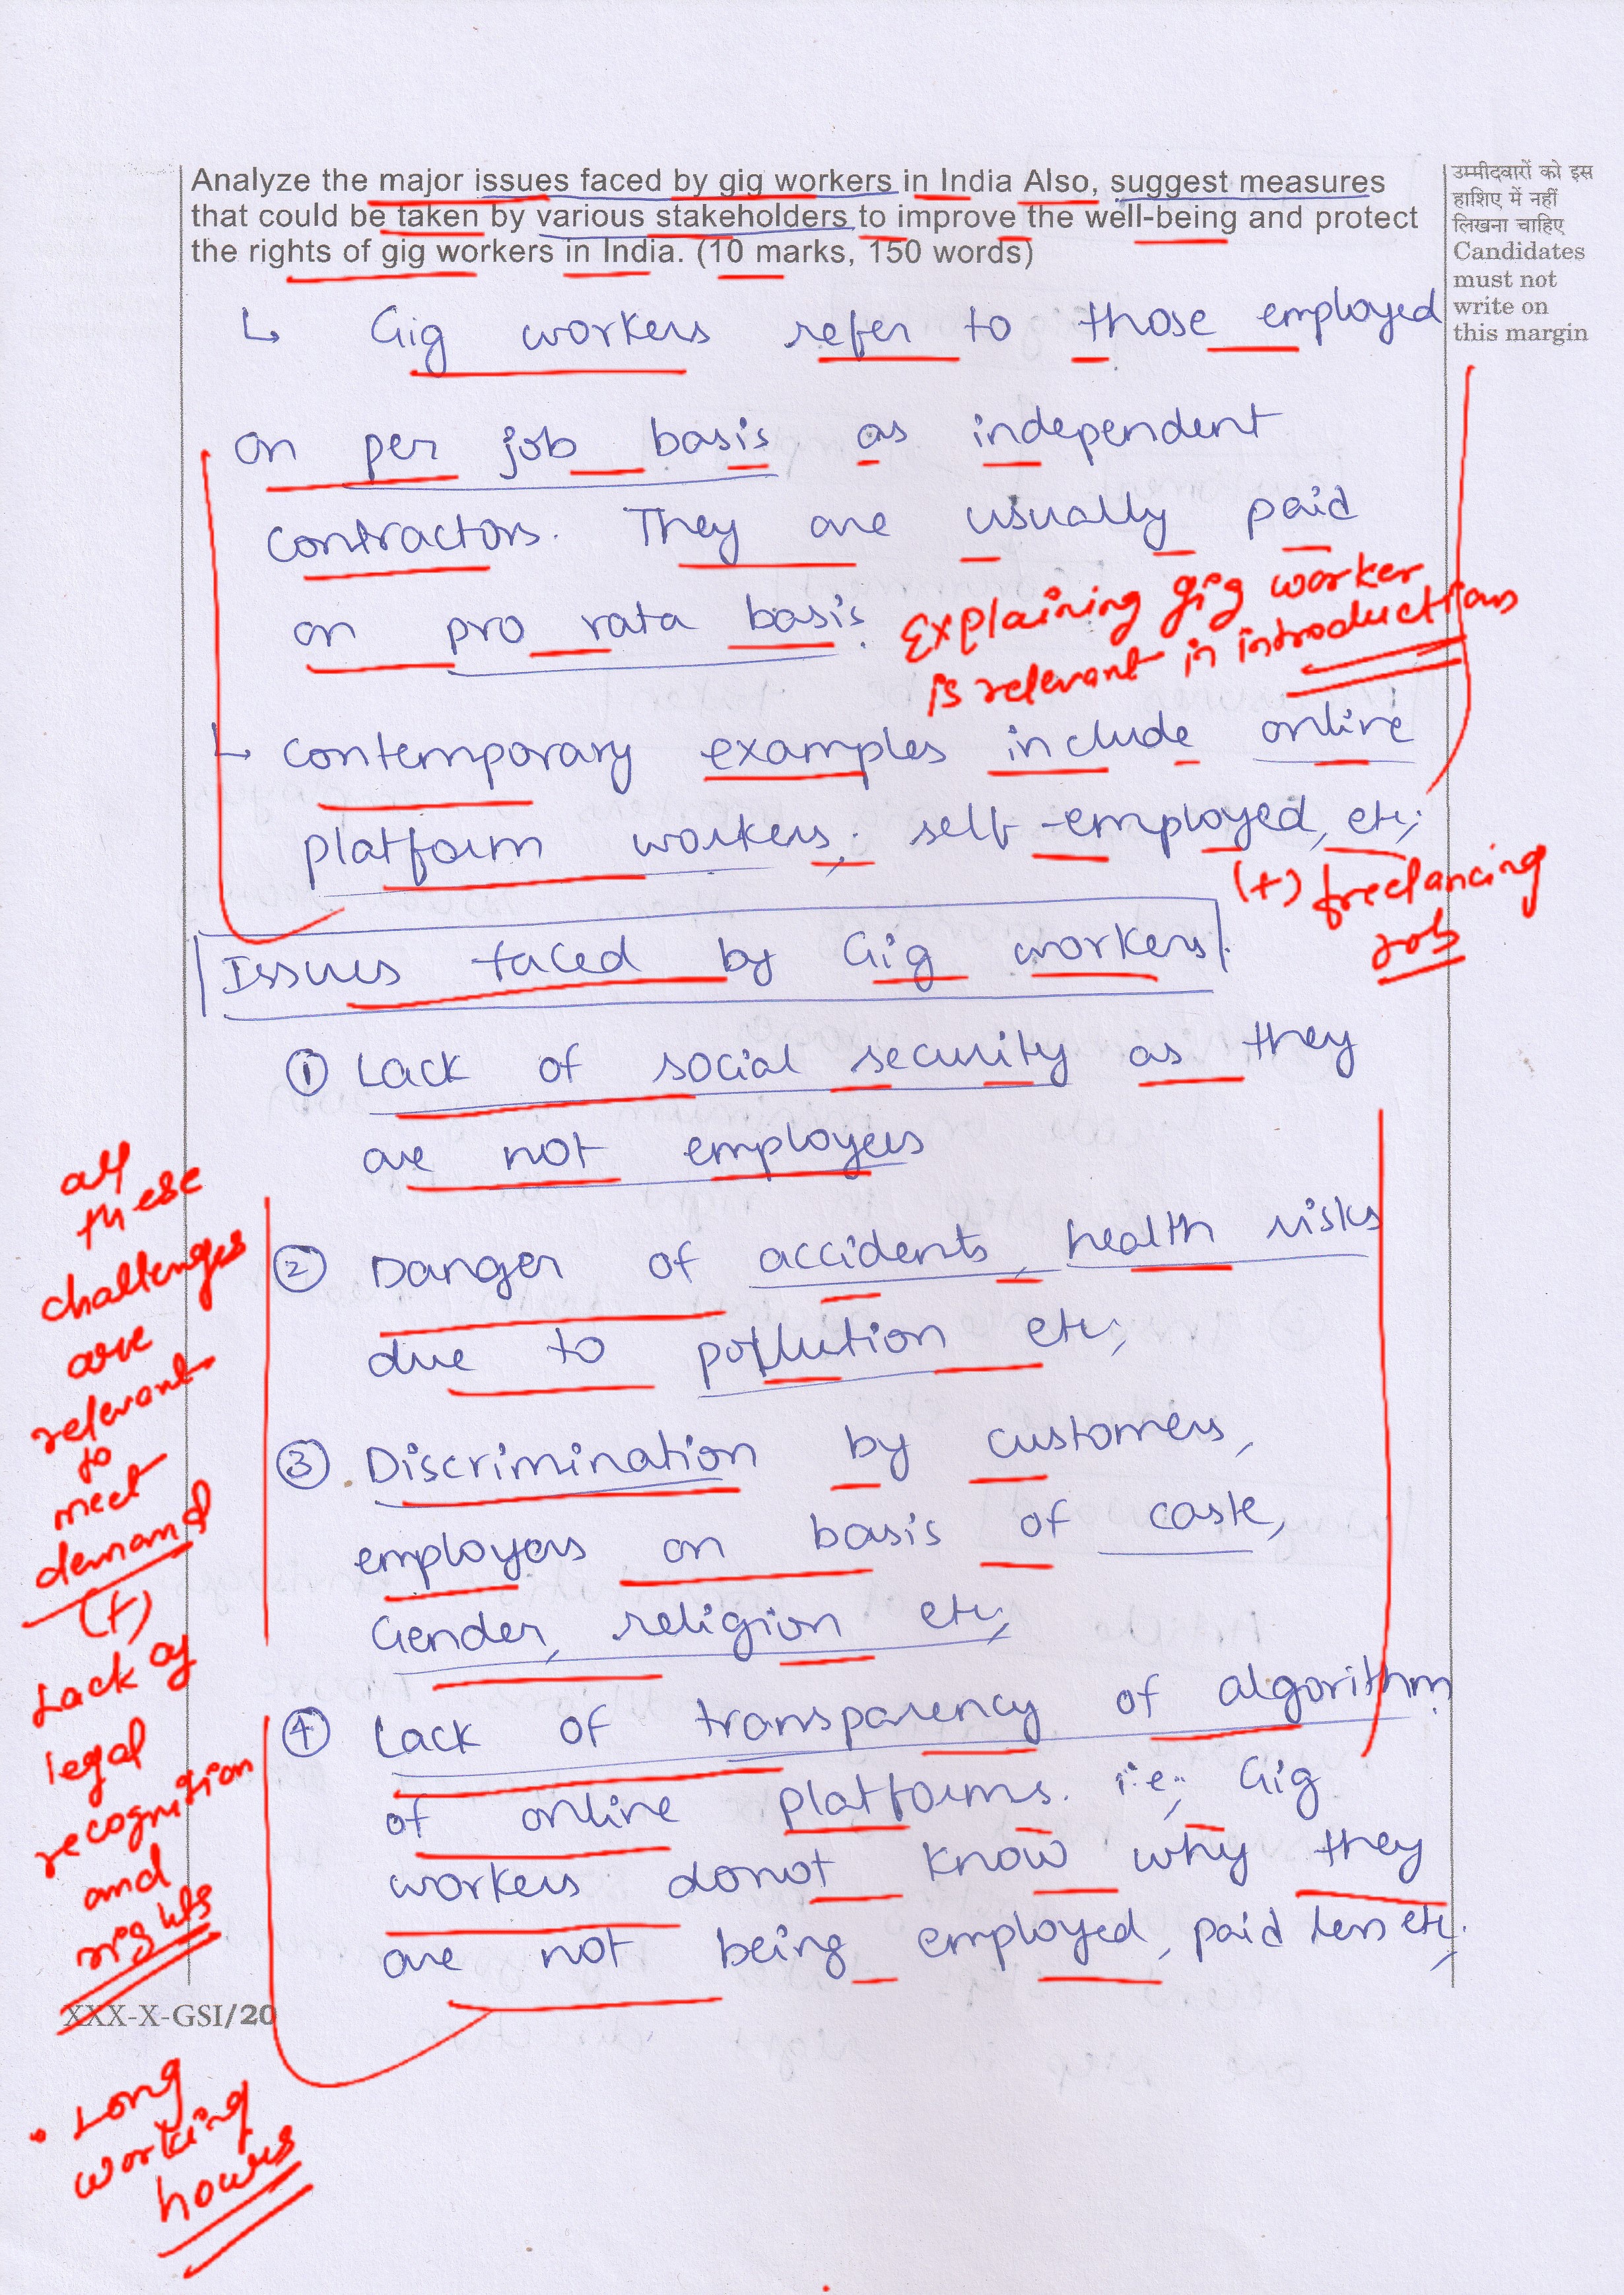 Analyze the major issues faced by gig workers in India Also, suggest measures
that could be taken by various stakeholders to improve the well-being and protect
the rights of gig workers in India. (10 marks, 150 words)
उम्मीदवारों को इस
हाशिए में नहीं
लिखना चाहिए
Candidates
must not
write on
this margin
↳ Gig workers refer to those employed
on per job basis as independent
contractors. They are usually paid
on pro rata basis.
Explaining gig worker
is relevant in introductions
↳ contemporary examples include online
platform workers, self-employed, etc;
(+) freelancing
job
Issues faced by Gig workers
① Lack of social security as they
are not employees
② Danger of accidents, health risks
due to pollution etc;
③ Discrimination by customers,
employers on basis of caste,
Gender, religion etc;
④ Lack of transparency of algorithm
of online platforms. i.e., Gig
workers donot know why they
are not being employed, paid less etc;
all
these
challenges
are
relevant
to
meet
demand
(+)
Lack of
legal
recognition
and
rights
XXX-X-GSI/20
• Long
working
hours